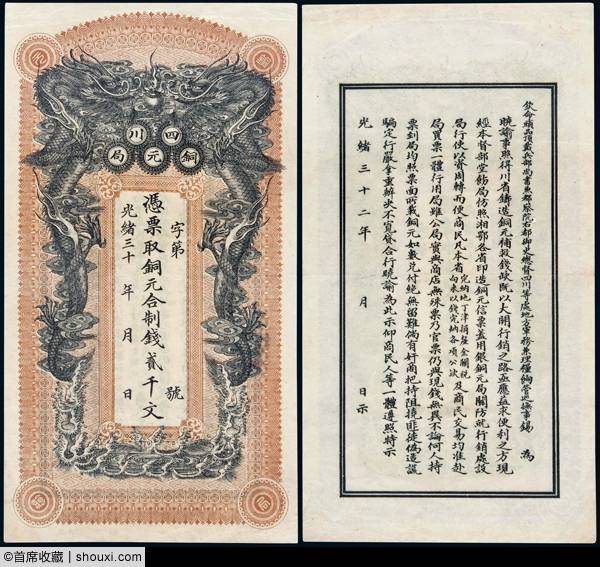 四川
銅元局
字第　　　號
憑票取銅元合制錢貳千文
光緒三十　年　月　日
欽命頭品頂戴兵部尚書兼都察院右都御史總督四川等處地方軍務兼理糧餉管巡撫事錫　為
曉諭事照得川省鑄造銅元補救錢缺既以大開行銷之路亟應益求便利之方現
經本督部堂飭局仿照湘鄂各省印造銅元信票蓋用銀銅元局關防就行銷處設
局行使以資周轉而便商民凡本省完納地丁津捐釐金關稅向來以錢完納各項公款及商民交易均准赴
局買票一體行用局雖公局實與商店無殊票乃官票仍與現錢無異不論何人持
票到局均照票面所載銅元如數兌付絕無留難倘有奸商把持阻撓匪徒偽造誆
騙定行嚴拿重辦決不寬貸合行曉諭為此示仰商民人等一體遵照特示
光緒三十二年　月　日示
©首席收藏 | shouxi.com